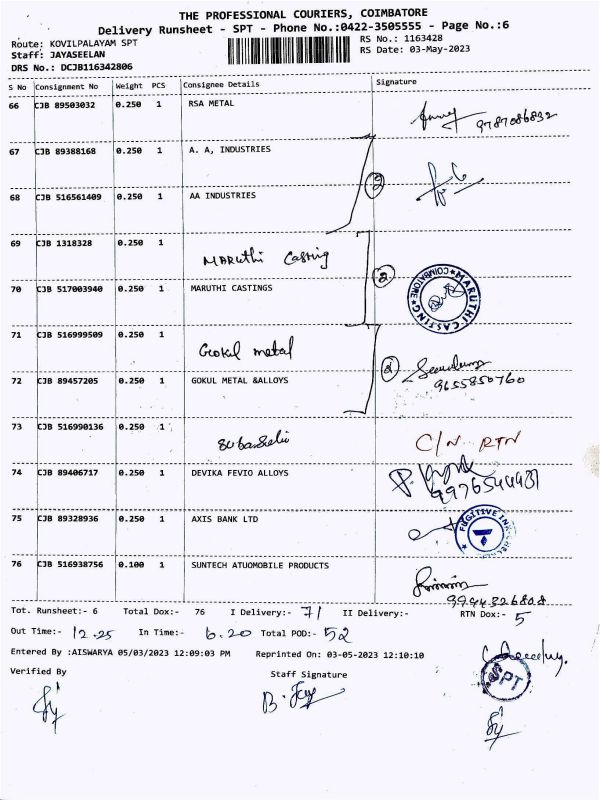 THE PROFESSIONAL COURIERS, COIMBATORE
Delivery Runsheet - SPT - Phone No.:0422-3505555 - Page No.:6
Route: KOVILPALAYAM SPT RS No.: 1163428
Staff: JAYASEELAN RS Date: 03-May-2023
DRS No.: DCJB116342806
S No Consignment No Weight PCS Consignee Details Signature
66 CJB 89503032 0.250 1 RSA METAL
9787086832
67 CJB 89388168 0.250 1 A. A, INDUSTRIES
68 CJB 516561409 0.250 1 AA INDUSTRIES
69 CJB 1318328 0.250 1 Maruthi Casting
70 CJB 517003940 0.250 1 MARUTHI CASTINGS 2
MARUTHI CASTING COIMBATORE
71 CJB 516999509 0.250 1 Gokul metal
72 CJB 89457205 0.250 1 GOKUL METAL &ALLOYS
9655850760
73 CJB 516990136 0.250 1 C/N RTN
74 CJB 89406717 0.250 1 DEVIKA FEVIO ALLOYS
75 CJB 89328936 0.250 1 AXIS BANK LTD
FUGITIVE INK
76 CJB 516938756 0.100 1 SUNTECH ATUOMOBILE PRODUCTS
9994326808
Tot. Runsheet:- 6 Total Dox:- 76 I Delivery:- 71 II Delivery:- RTN Dox:- 5
Out Time:- 12.25 In Time:- 6.20 Total POD:- 52
Entered By :AISWARYA 05/03/2023 12:09:03 PM Reprinted On: 03-05-2023 12:10:10
Verified By Staff Signature
SPT